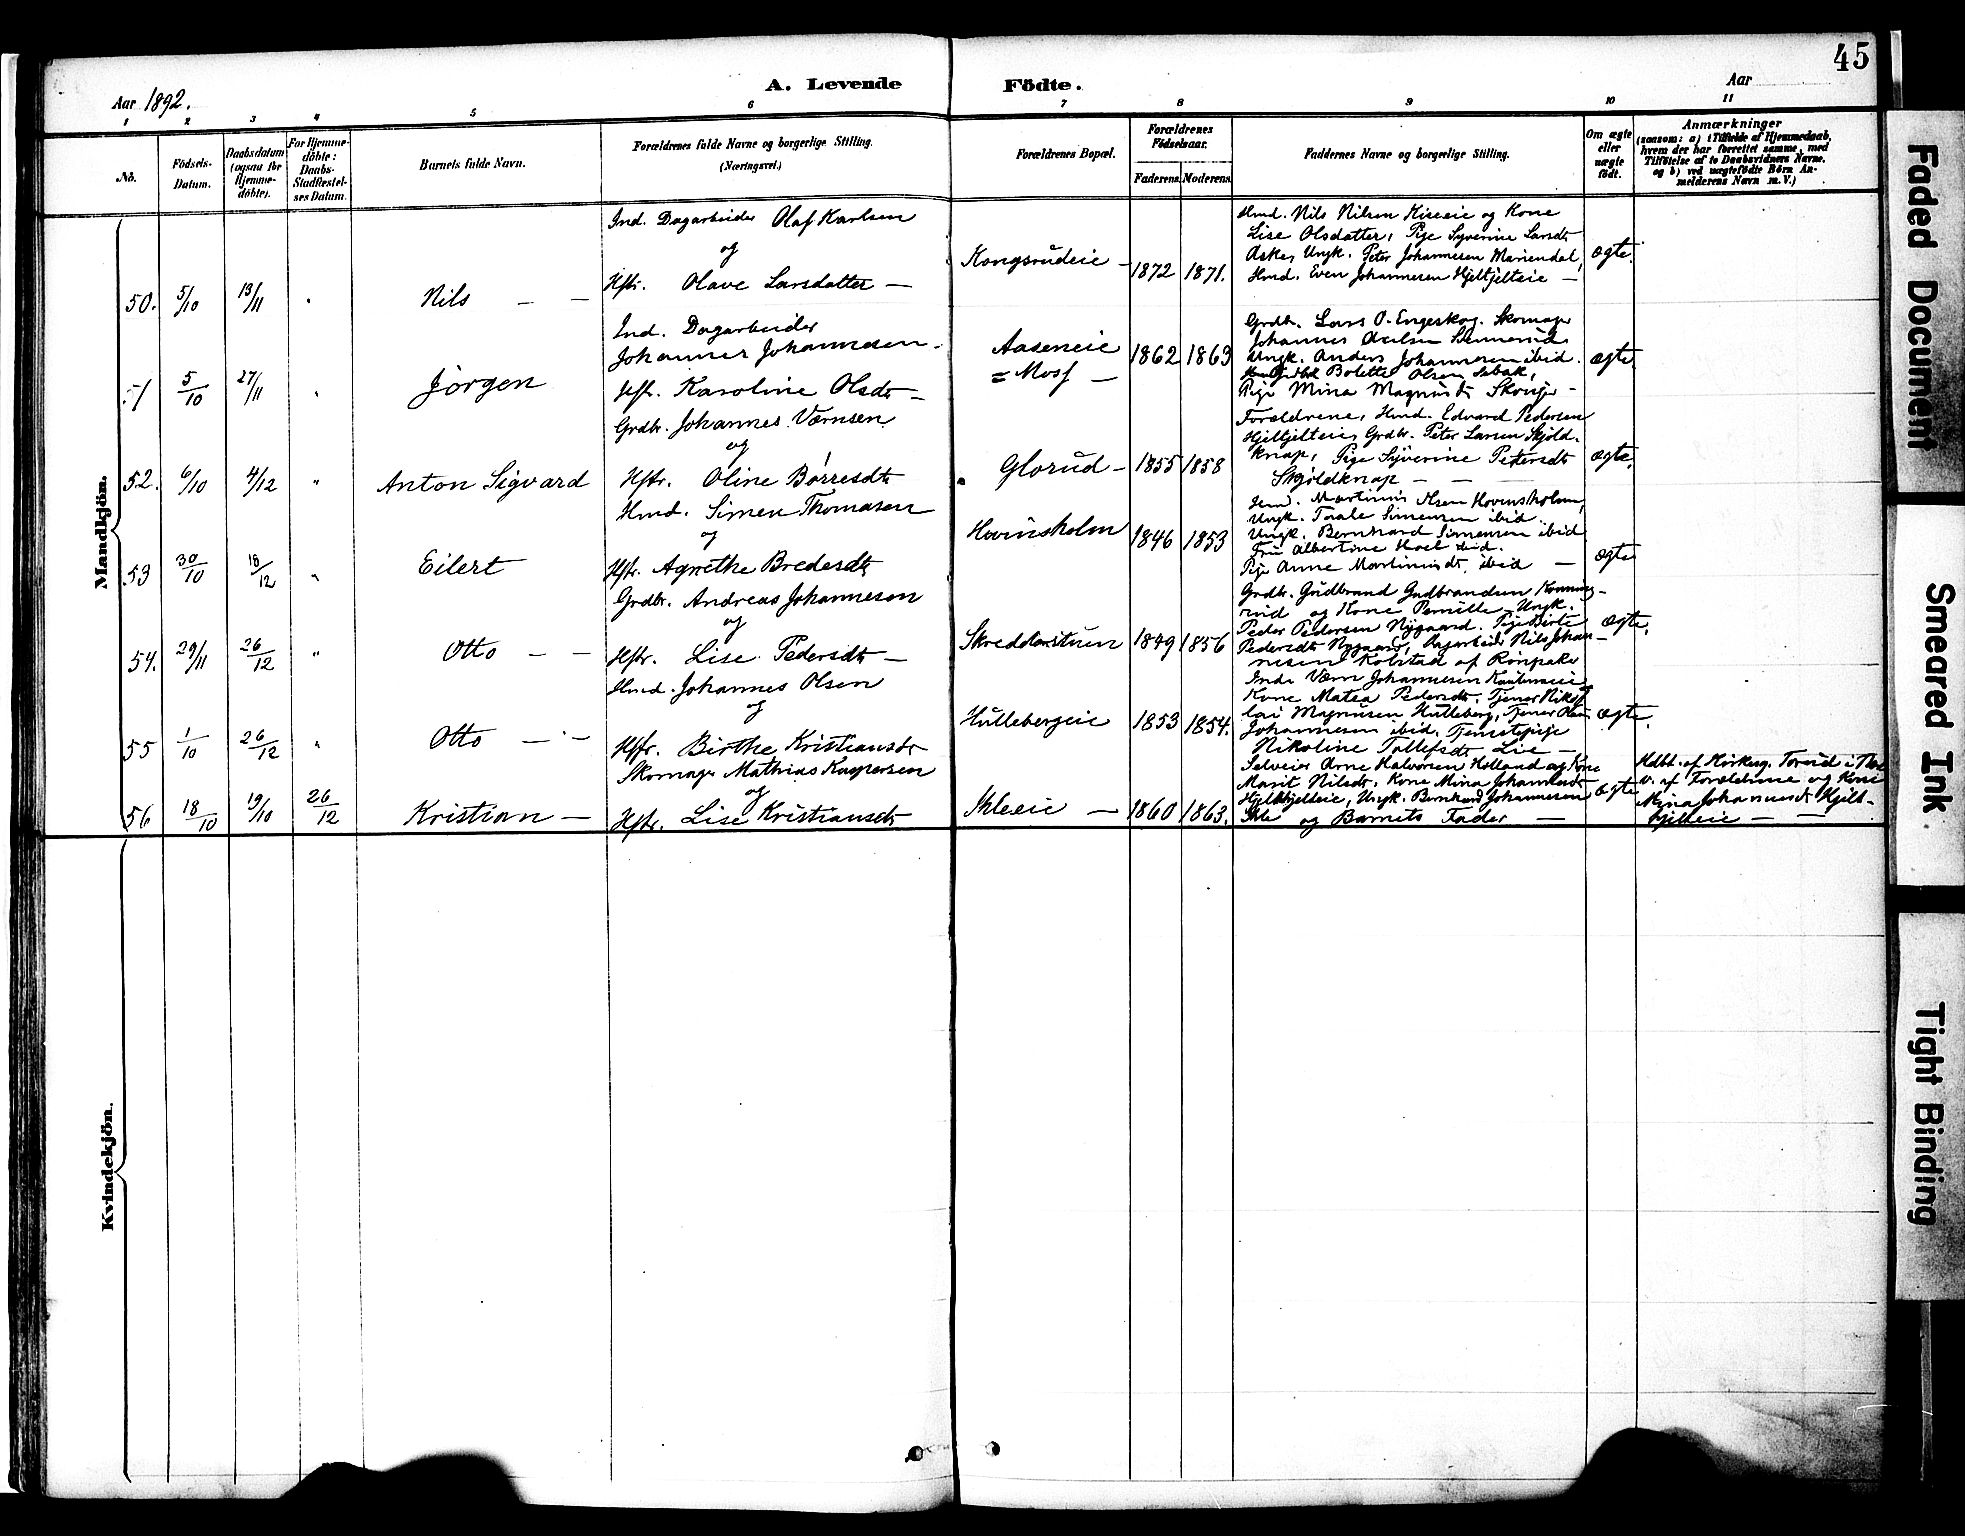 45
Aar 1892.
A. Levende Födte.
Aar
1 2 3 4 5 6 7 8 9 10 11
No.
Födsels-Datum.
Daabsdatum (ogsaa for Hjemme-döbte).
For Hjemme-döbte: Daabs-Stadfæstel-ses Datum.
Barnets fulde Navn.
Forældrenes fulde Navne og borgerlige Stilling. (Næringsvei.)
Forældrenes Bopæl.
Forældrenes Födselsaar.
Faderens. Moderens.
Faddernes Navne og borgerlige Stilling.
Om ægte eller uægte födt.
Anmærkninger
(saasom: a) i Tilfælde af Hjemmedaab, hvem der har forrettet samme, med Tilföielse af to Daabsvidners Navne, og b) ved uægtefödte Börn An-melderens Navn m. V.)
Mandkjön.
50. 5/10 13/11 "
Nils — —
Ind. Dagarbeider Olaf Karlsen
og
Hstr. Olave Larsdatter —
Kongsrudeie —
1872 1871.
Hmd. Nils Nilsen Kiseeie og Kone
Lise Olsdatter, Pige Syverine Larsdtr
Aske, Ungk. Peter Johannesen Mariendal,
Hmd. Even Johannesen Hjeltjelteie —
ægte.
51 5/10 27/11 "
Jörgen
Ind. Dagarbeider
Johannes Johannesen
Hstr. Karoline Olsdtr —
Aaseneie
= Mosf —
1862 1863
Grdbr. Lars O. Engeskog. Skomager
Johannes
Ungk. Anders Johannesen ibid.
Bolette Olsen
Pige Mina
ægte.
52. 6/10 4/12 "
Anton Sigvard
Grdbr. Johannes Værnsen
og
Hstr. Oline Børresdtr
Glorud —
1855 1858
Forældrene, Hmd. Edvard Pedersen
Hjeltjelteie, Grdbr. Peter Larsen Skjöld-
knap, Pige Syverine Petersdtr
Skjøldknap — — —
ægte.
53 30/10 18/12 "
Eilert
Hmd. Simen Thomasen
og
Hstr. Agnethe Bredesdtr
Hovinsholm
1846 1853
Martinus Olsen Hovinsholm,
Ungk. Simensen ibid
Ungk. Bernhard Simensen ibid
Fru Albertine Hoel ibid.
Pige Anne Martinusdtr. ibid —
ægte
54. 29/11 26/12 "
Otto — —
Grdbr. Andreas Johannesen
og
Hstr. Lise Pedersdtr —
Skredderstuen
1849 1856
Grdbr. Gudbrand Gudbrandsen
rud og Kone Pernille. Ungk.
Peder Pedersen Nygaard. Pige Birte
Pedersdtr Nygaard, Dagarbeider Nils Johan-
nesen Kolstad af
ægte.
55 1/10 26/12 "
Otto — —
Hmd. Johannes Olsen
og
Hstr. Birthe Kristiansdtr
Hullebergeie
1853 1854.
Værn Johannesen
Kone Matea Pedersdtr. Tjener Niko-
lai Magnusen Hulleberg, Tjener
Johannesen ibid. Tjenestepige
Nikoline Tollefsdtr Lie —
ægte.
56 18/10 19/10 26/12
Kristian —
Skomager Mathias Kaspersen
og
Hstr. Lise Kristiansdtr
Skleeie —
1860 1863.
Selveier Arne Halvorsen Holland og Kone
Marit Nilsdtr. Kone Mina Johannesdtr
Hjeltjelteie, Ungk. Bernhard Johannesen
Skle og Barnets Fader —
ægte
Hdbt. af Kirkesg.
af Forældrene og Kone
Mina Johannesdtr Hjelt-
jelteie — —
Kvindekjön.
Faded Document
Smeared Ink
Tight Binding